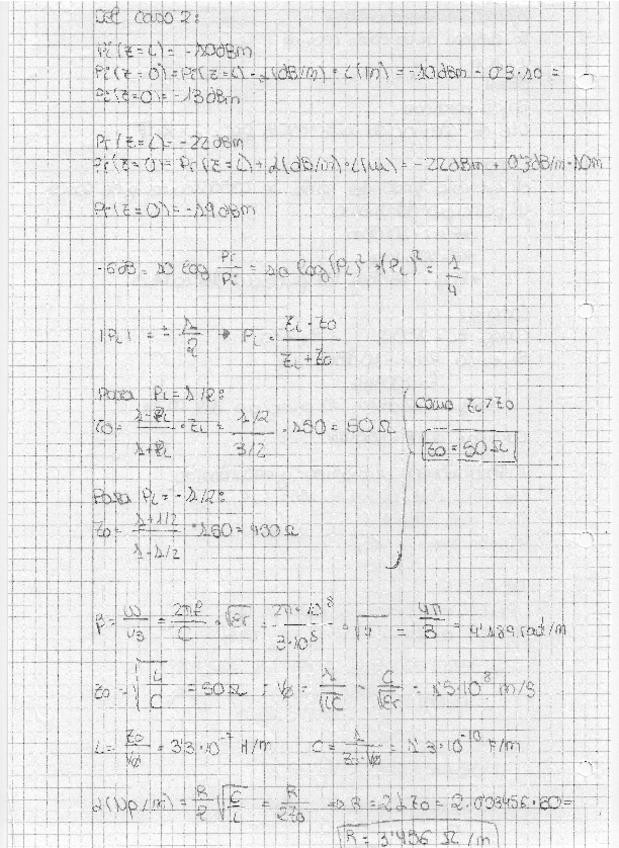 Del caso 2:
Pi(z=L) = -10dBm
Pi(z=0) = Pi(z=L) - α(dB/m) · L(m) = -10dBm - 0'3·10 =
Pi(z=0) = -13dBm
Pr(z=L) = -22dBm
Pr(z=0) = Pr(z=L) + α(dB/m)·L(m) = -22dBm + 0'3dB/m·10m
Pr(z=0) = -19dBm
-6dB = 10 log Pr/Pi = 10 log(ρL)² → (ρL)² = 1/4
|ρL| = ± 1/2 → ρL = ZL - Z0 / ZL + Z0
Para ρL = 1/2:
Z0 = 1-ρL / 1+ρL · ZL = 1/2 / 3/2 · 150 = 50Ω
Como ZL>Z0
Z0 = 50Ω
Para ρL = -1/2:
Z0 = 1+1/2 / 1-1/2 · 150 = 450Ω
β = ω/vβ = 2πf/C · √εr = 2π·10⁸ / 3·10⁸ · √4 = 4π/3 = 4'189 rad/m
Z0 = √L/C = 50Ω ; Vφ = 1/√LC = C/√εr = 1'5·10⁸ m/s
L = Z0/Vφ = 3'3·10⁻⁷ H/m C = 1/Z0·Vφ = 1'3·10⁻¹⁰ F/m
α(Np/m) = R/2 √C/L = R/2Z0 ⇒ R = 2αZ0 = 2·0'03456·50 =
R = 3'456 Ω/m